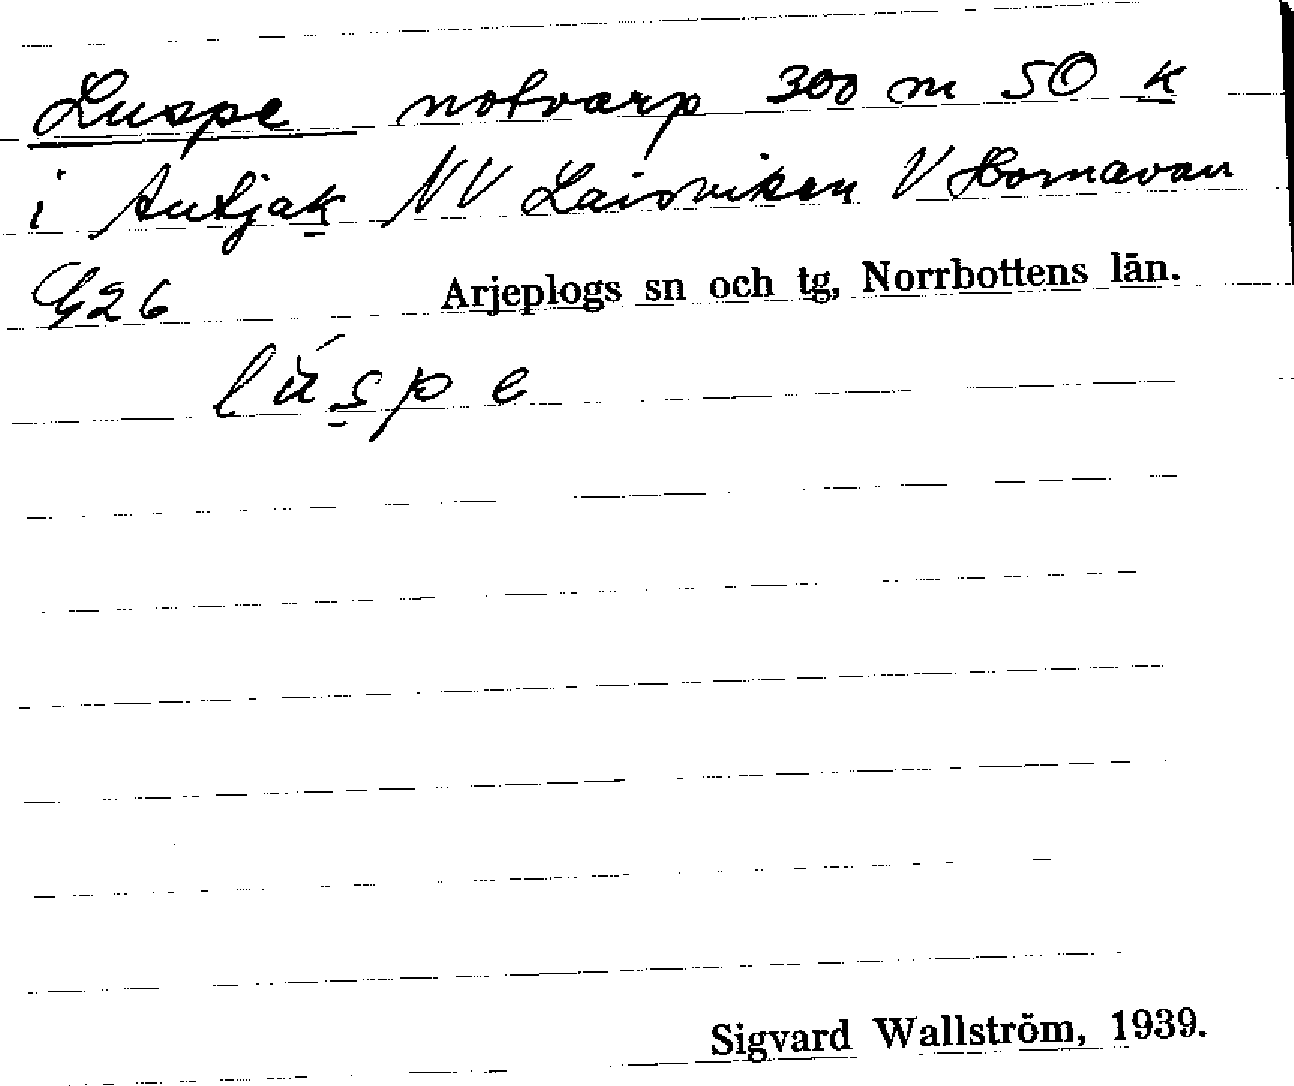 Luspe notvarp 300 m SO k
i Autjak NV Laisviken V Hornavan
G26 Arjeplogs sn och tg, Norrbottens län.
lúspe
Sigvard Wallström, 1939.